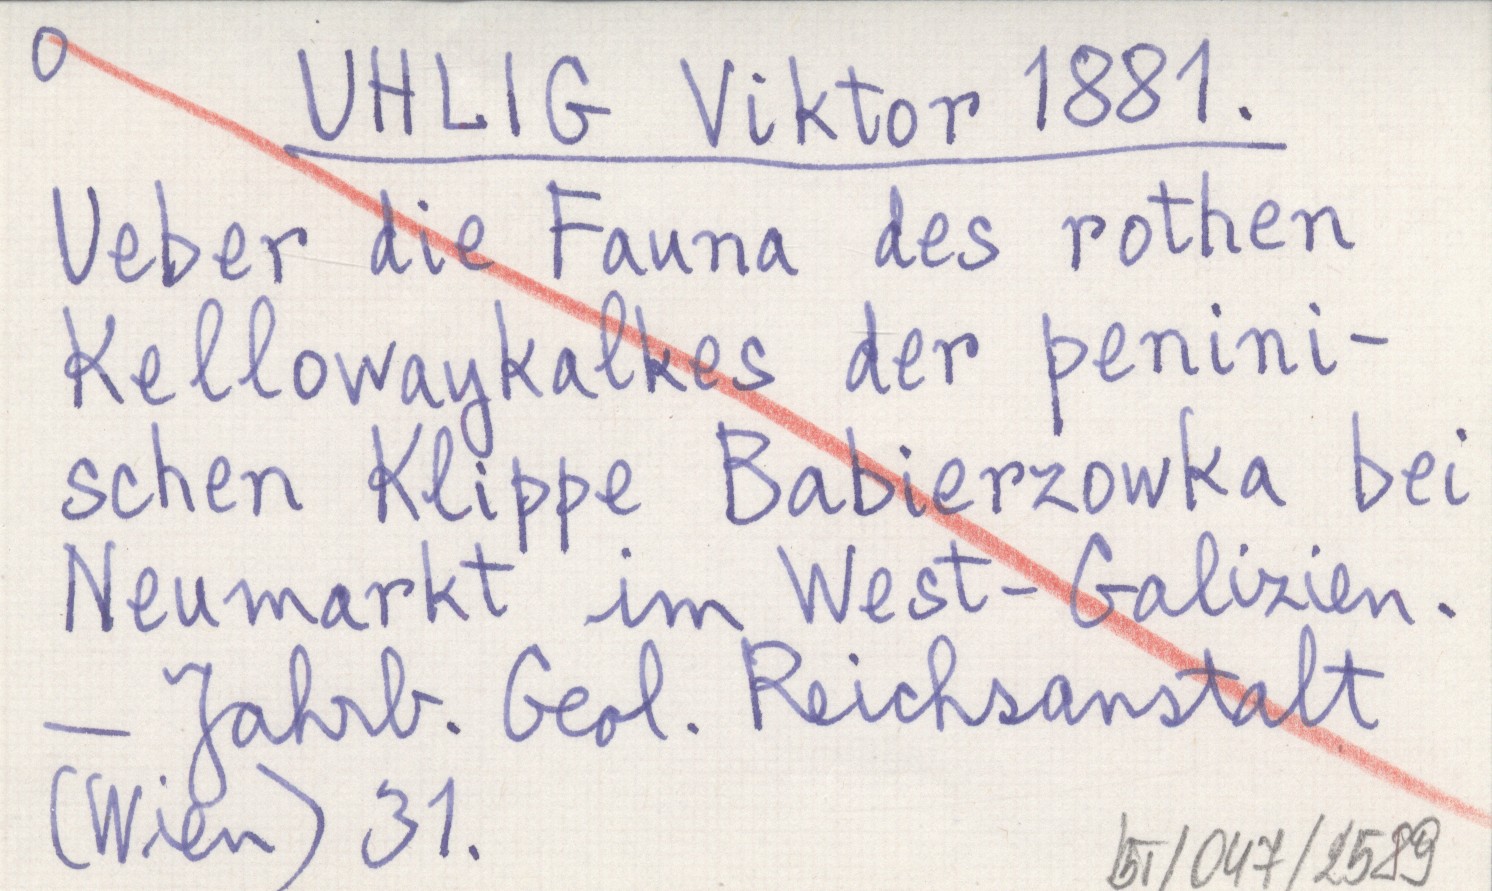 O UHLIG Viktor 1881.
Ueber die Fauna des rothen
Kellowaykalkes der penini-
schen Klippe Babierzowka bei
Neumarkt im West-Galizien.
— Jahrb. Geol. Reichsanstalt
(Wien) 31.
/047/2589